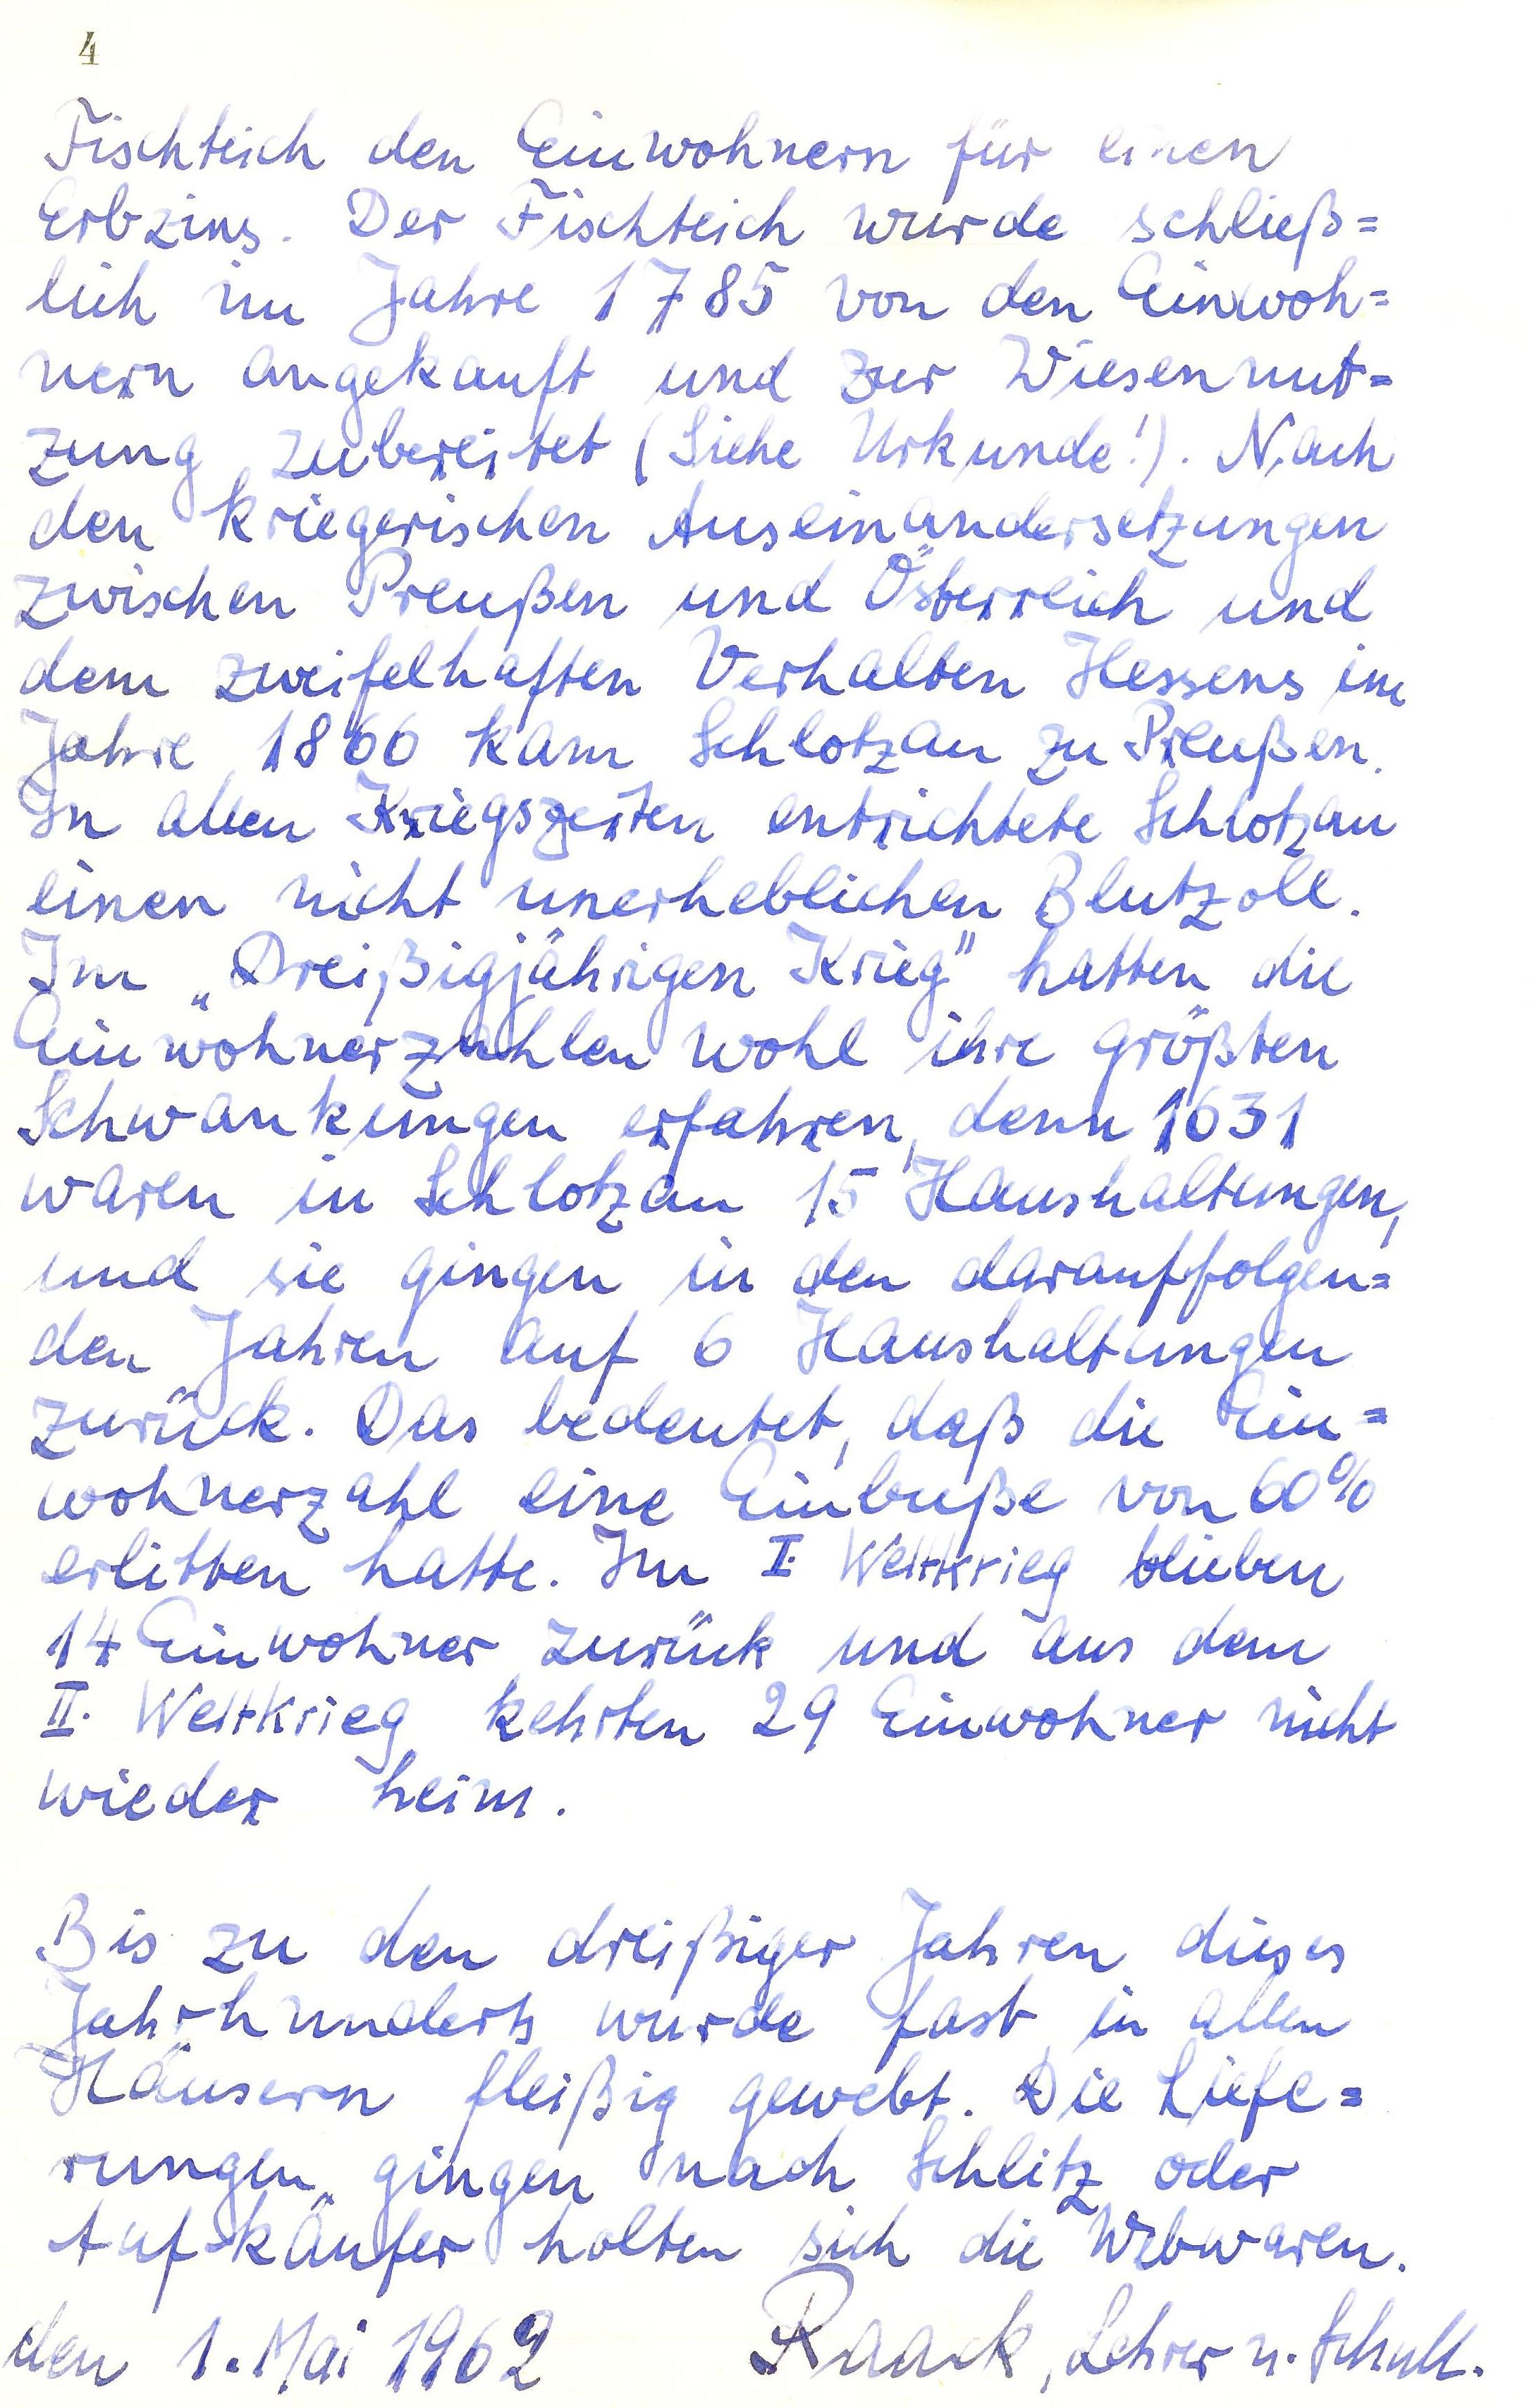 4
Fischteich den Einwohnern für einen
Erbzins. Der Fischteich wurde schließ=
lich im Jahre 1785 von den Einwoh=
nern angekauft und zur Wiesennut=
zung zubereitet (Siehe Urkunde!). Nach
den kriegerischen Auseinandersetzungen
zwischen Preußen und Österreich und
dem zweifelhaften Verhalten Hessens im
Jahre 1866 kam Schlotzau zu Preußen.
In allen Kriegszeiten entrichtete Schlotzau
einen nicht unerheblichen Blutzoll.
Im „Dreißigjährigen Krieg" hatten die
Einwohnerzahlen wohl ihre größten
Schwankungen erfahren, denn 1631
waren in Schlotzau 15 Haushaltungen,
und sie gingen in den darauffolgen=
den Jahren auf 6 Haushaltungen
zurück. Das bedeutet, daß die Ein=
wohnerzahl eine Einbuße von 60%
erlitten hatte. Im I. Weltkrieg blieben
14 Einwohner zurück und aus dem
II. Weltkrieg kehrten 29 Einwohner nicht
wieder heim.
Bis zu den dreißiger Jahren dieses
Jahrhunderts wurde fast in allen
Häusern fleißig gewebt. Die Liefe=
rungen gingen nach Schlitz oder
Aufkäufer holten sich die Webwaren.
den 1. Mai 1962 Raack, Lehrer u. Schull.